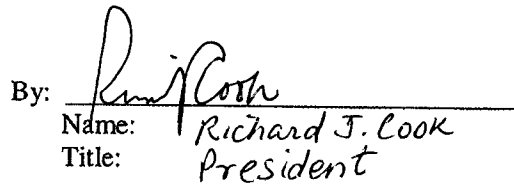 By: Rum J Cook
Name: Richard J. Cook
Title: President